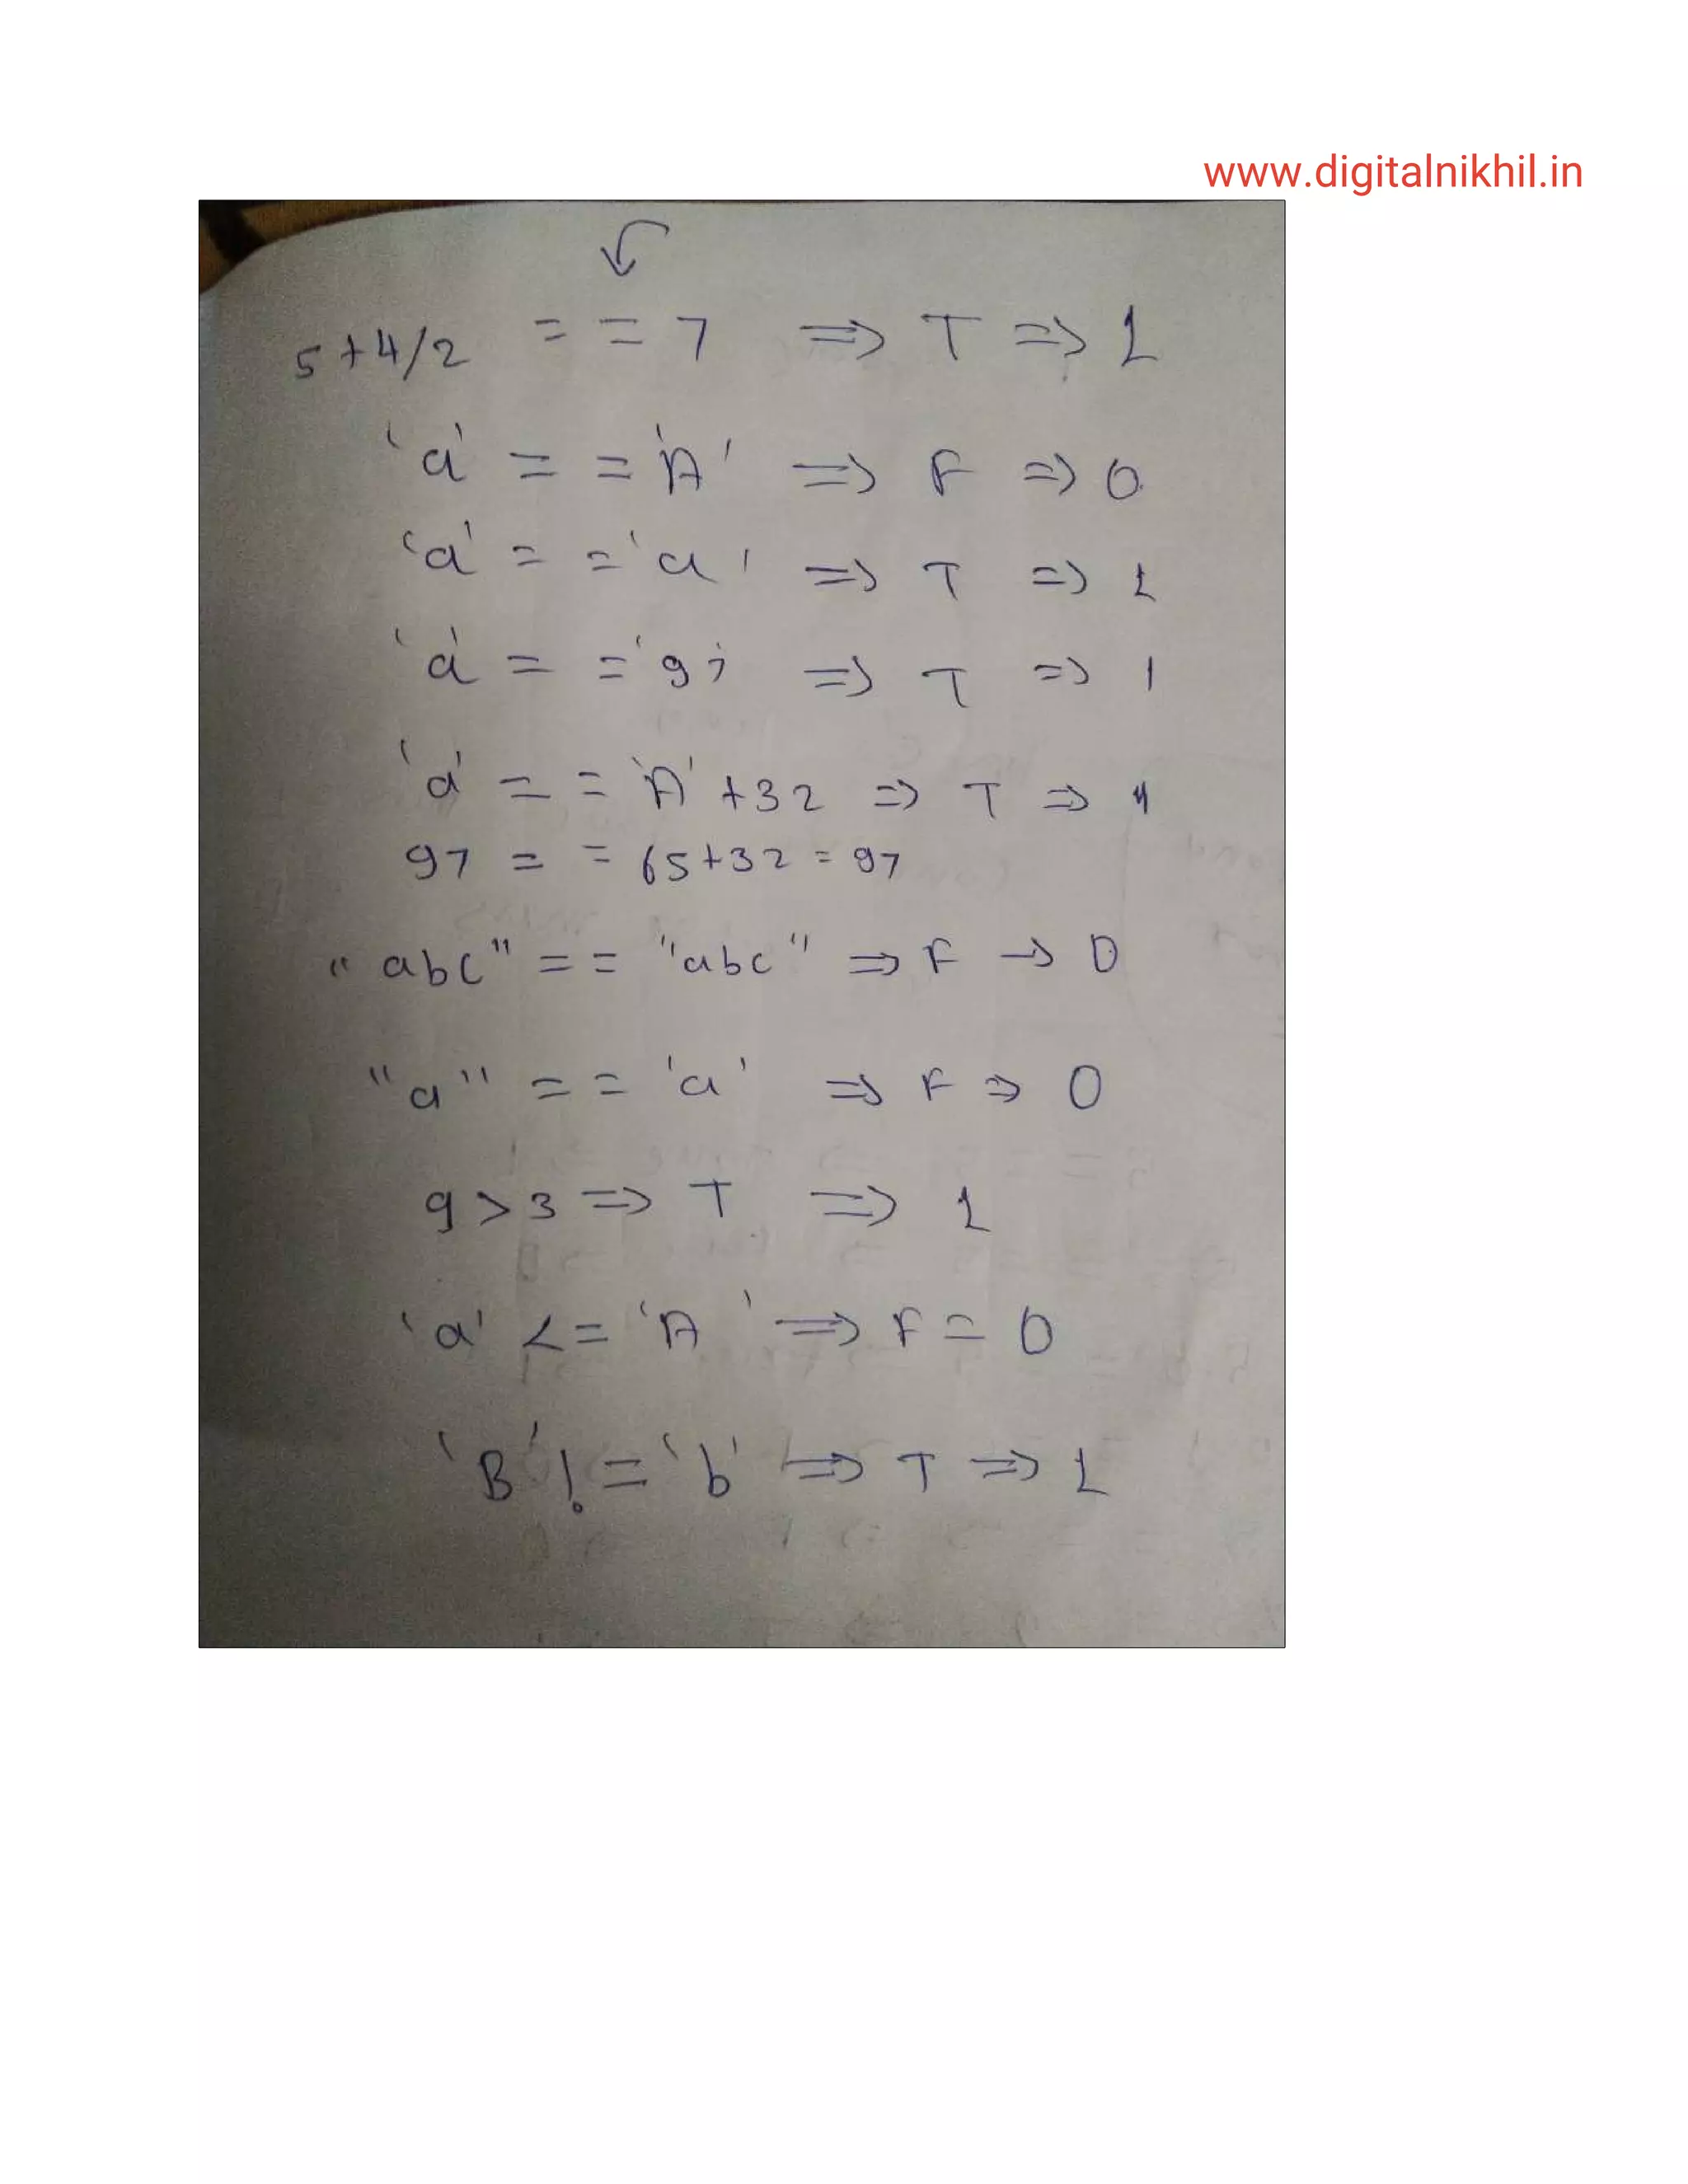 www.digitalnikhil.in
5+4/2 == 7 => T => 1
'a' == 'A' => F => 0
'a' == 'a' => T => 1
'a' == '97 => T => 1
'a' == 'A' +32 => T => 1
97 == 65+32 = 97
"abc" == "abc" => F → 0
"a" == 'a' => F => 0
9 > 3 => T => 1
'a' <= 'A' => F = 0
'B' != 'b' => T => 1